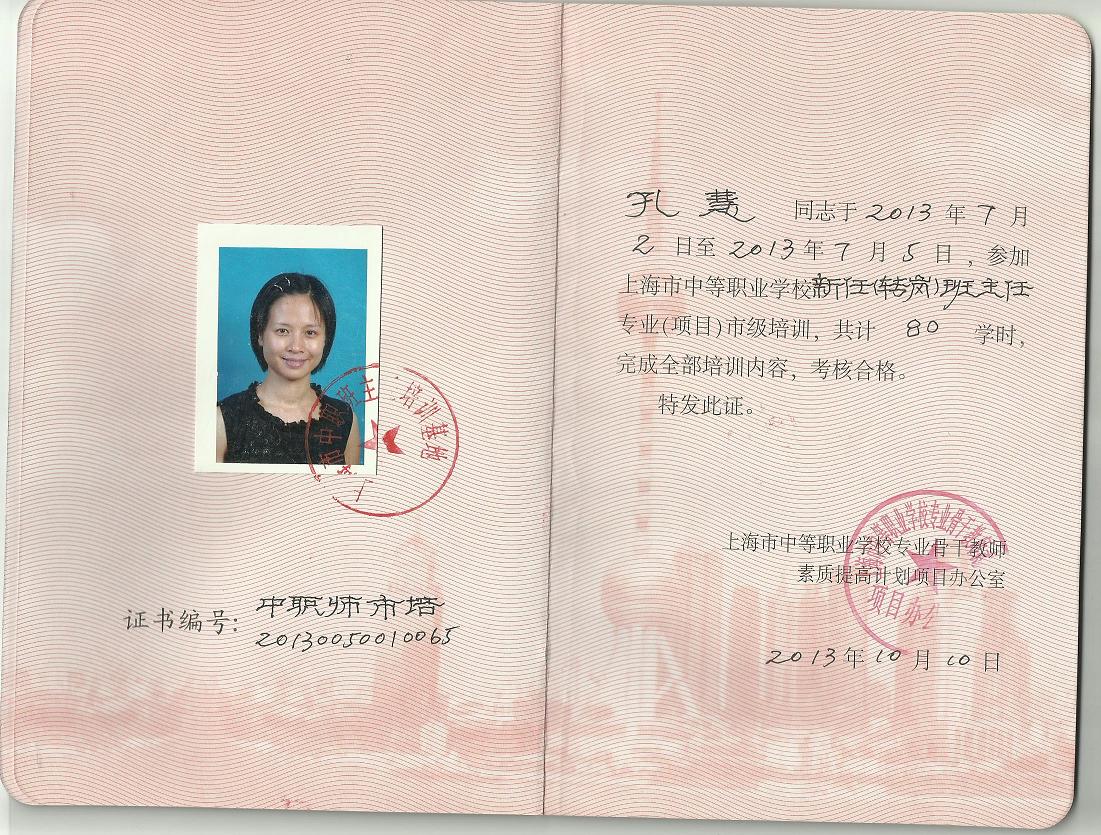 证书编号：中职师市培
20130050010065
培训基地
孔慧 同志于 2013 年 7 月
2 日至 2013 年 7 月 5 日，参加
上海市中等职业学校新任(转岗)班主任
专业(项目)市级培训，共计 80 学时，
完成全部培训内容，考核合格。
特发此证。
上海市中等职业学校专业骨干教师
素质提高计划项目办公室
2013 年 10 月 10 日